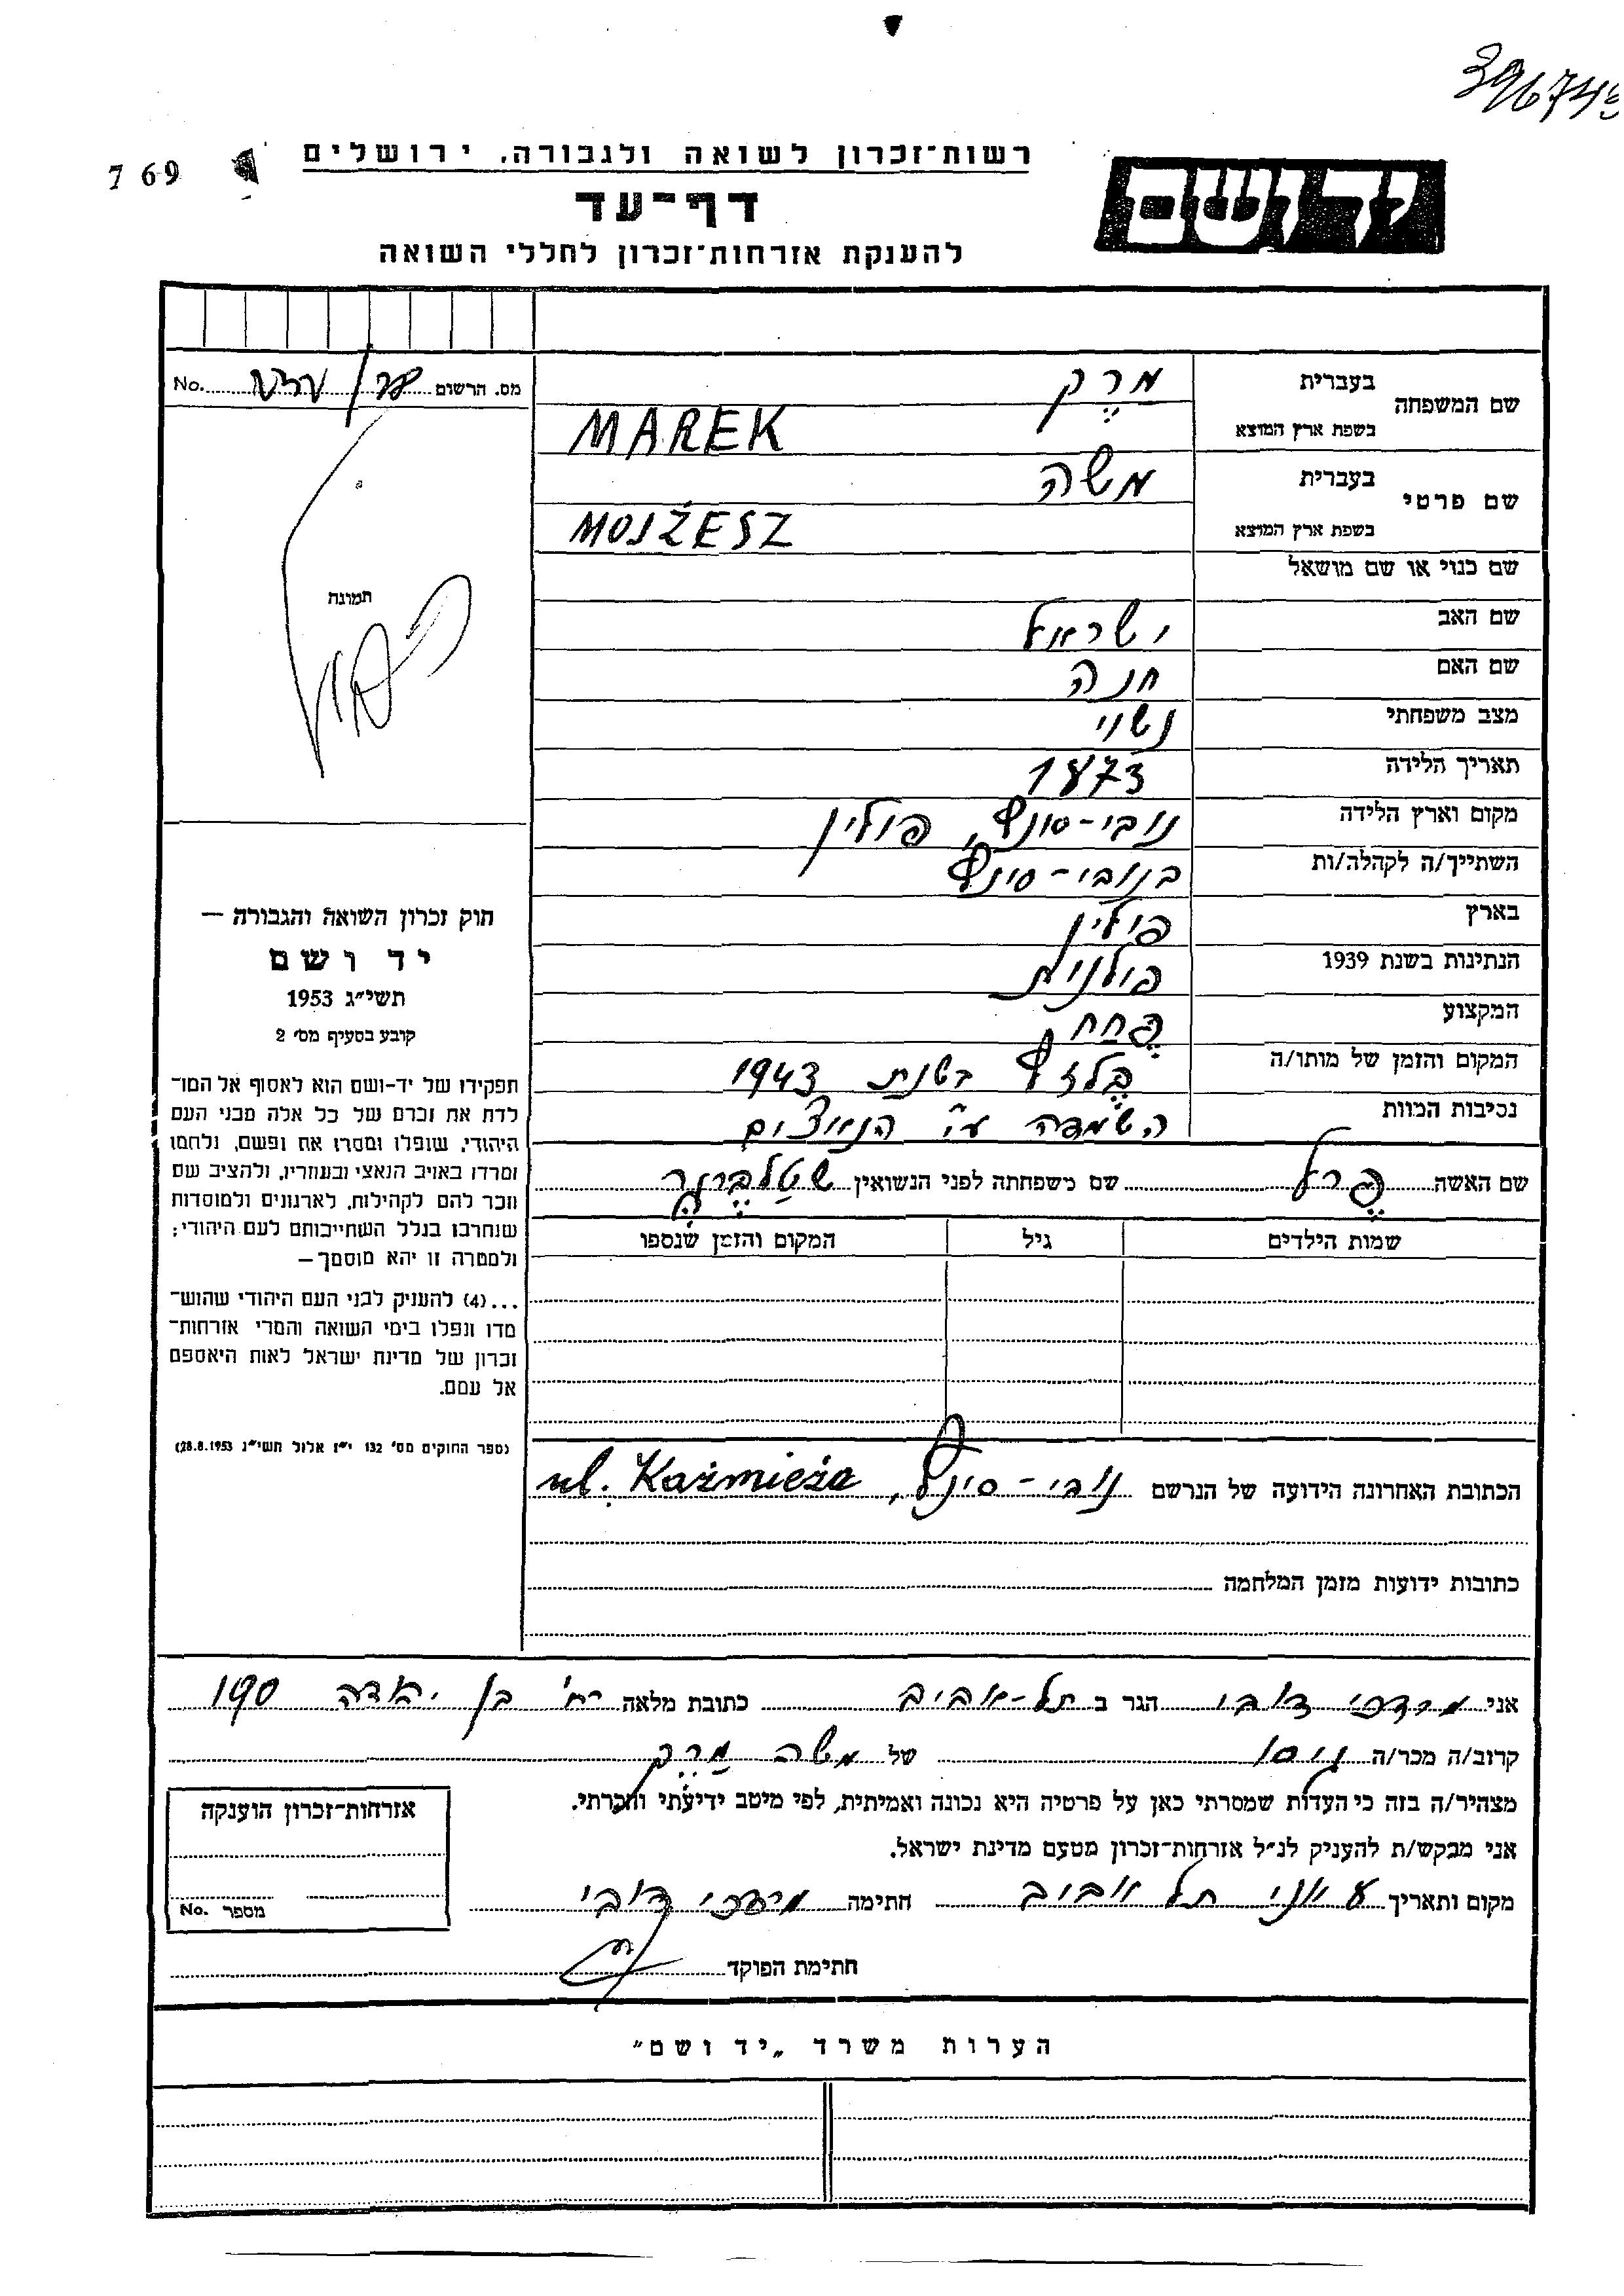 396743
769
רשות־זכרון לשואה ולגבורה, ירושלים
יד ושם
דף־עד
להענקת אזרחות־זכרון לחללי השואה
מס. הרשום No.
שם המשפחה
בעברית מרק
בשפת ארץ המוצא MAREK
שם פרטי
בעברית משה
בשפת ארץ המוצא MOJŻESZ
שם כנוי או שם מושאל
שם האב ישראל
שם האם חנה
מצב משפחתי נשוי
תאריך הלידה 1873
מקום וארץ הלידה נובי-סונץ, פולין
השתייך/ה לקהלה/ות בנובי-סינץ
בארץ פולין
הנתינות בשנת 1939 פולנית
המקצוע פחח
המקום והזמן של מותו/ה בלזץ בשנת 1943
נסיבות המוות השמדה ע"י הנאצים
שם האשה פרל שם משפחתה לפני הנשואין
שמות הילדים גיל המקום והזמן שנספו
הכתובת האחרונה הידועה של הנרשם נובי-סינץ, ul. Kaźmieźa
כתובות ידועות מזמן המלחמה
תמונה
חוק זכרון השואה והגבורה —
יד ושם
תשי״ג 1953
קובע בסעיף מס׳ 2
תפקידו של יד-ושם הוא לאסוף אל המו־
לדת את זכרם של כל אלה מבני העם
היהודי, שנפלו ומסרו את נפשם, נלחמו
ומרדו באויב הנאצי ובעוזריו, ולהציב שם
וזכר להם לקהילות, לארגונים ולמוסדות
שנחרבו בגלל השתייכותם לעם היהודי;
ולמטרה זו יהא מוסמך—
...(4) להעניק לבני העם היהודי שהוש־
מדו ונפלו בימי השואה והמרי אזרחות־
זכרון של מדינת ישראל לאות היאספם
אל עמם.
(ספר החוקים מס׳ 132 י״ז אלול תשי״ג 28.8.1953)
אני מרדכי דובי הגר ב תל-אביב כתובת מלאה רח' בן יהודה 190
קרוב/ה מכר/ה גיסו של משה מרק
מצהיר/ה בזה כי העדות שמסרתי כאן על פרטיה היא נכונה ואמיתית, לפי מיטב ידיעתי והכרתי.
אני מבקש/ת להעניק לנ״ל אזרחות־זכרון מטעם מדינת ישראל.
מקום ותאריך תל אביב חתימה מרדכי דובי
חתימת הפוקד
אזרחות־זכרון הוענקה
מספר No.
הערות משרד „יד ושם״